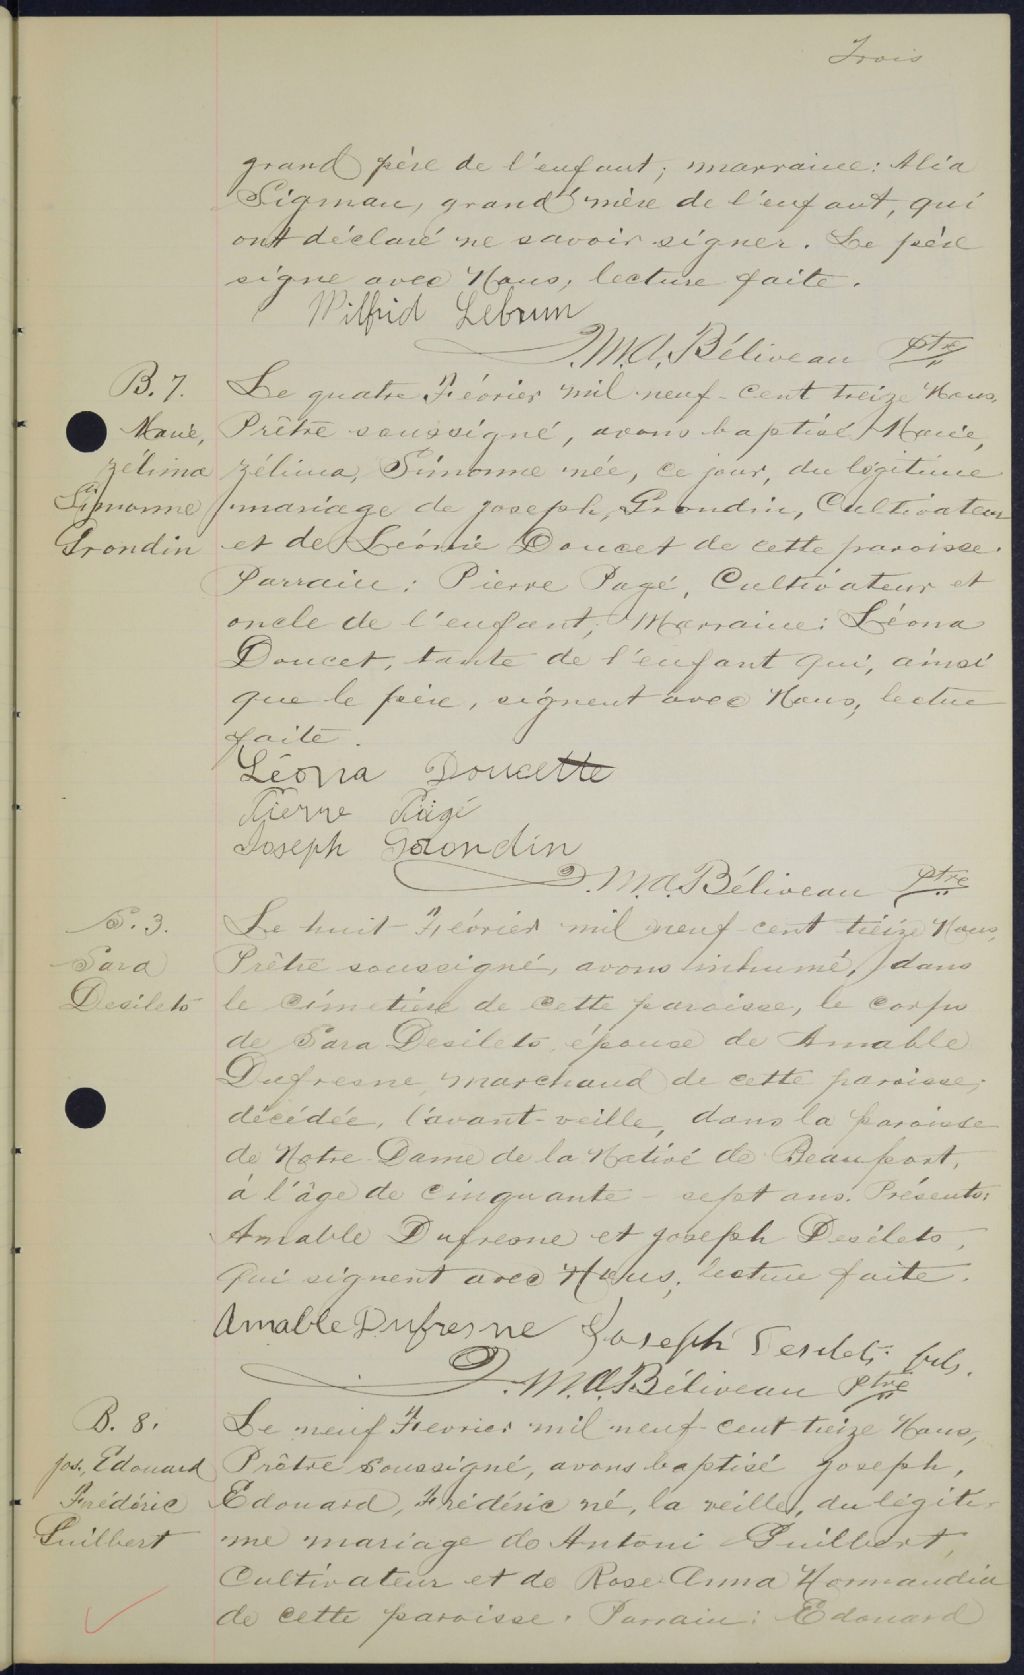 Trois
grand père de l'enfant; marraine: Alia
Sigman, grand'mère de l'enfant, qui
ont déclaré ne savoir signer. Le père
signe avec Nous, lecture faite.
Wilfrid Lebrun
M.A. Béliveau Ptre
B. 7.
Marie,
zélima
Simonne
Grondin
Le quatre Février mil neuf-cent treize Nous,
Prêtre soussigné, avons baptisé Marie,
zélima, Simonne née, ce jour, du légitime
mariage de Joseph, Grondin, Cultivateur
et de Léonie Doucet de cette paroisse.
Parrain: Pierre Pagé, Cultivateur et
oncle de l'enfant, Marraine: Léona
Doucet, tante de l'enfant qui, ainsi
que le père, signent avec Nous, lecture
faite.
Léona Doucette
Pierre Pagé
Joseph Grondin
M.A. Béliveau Ptre
S. 3.
Sara
Desilets
Le huit Février mil neuf cent treize Nous,
Prêtre soussigné, avons inhumé, dans
le cimetière de cette paroisse, le corps
de Sara Desilets, épouse de Amable
Dufresne, marchand de cette paroisse;
décédée, l'avant-veille, dans la paroisse
de Notre Dame de la Nativé de Beauport,
à l'âge de cinquante-sept ans. Présents:
Amable Dufresne et Joseph Desilets,
qui signent avec Nous, lecture faite.
Amable Dufresne Joseph Desilets fils.
M.A. Béliveau Ptre
B. 8.
Jos., Edouard
Frédéric
Guilbert
Le neuf Fevrier mil neuf-cent-treize Nous,
Prêtre soussigné, avons baptisé Joseph,
Edouard, Frédéric né, la veille, du légiti-
me mariage de Antoni Guilbert,
Cultivateur et de Rose-Anna Normandin
de cette paroisse. Parrain: Edouard